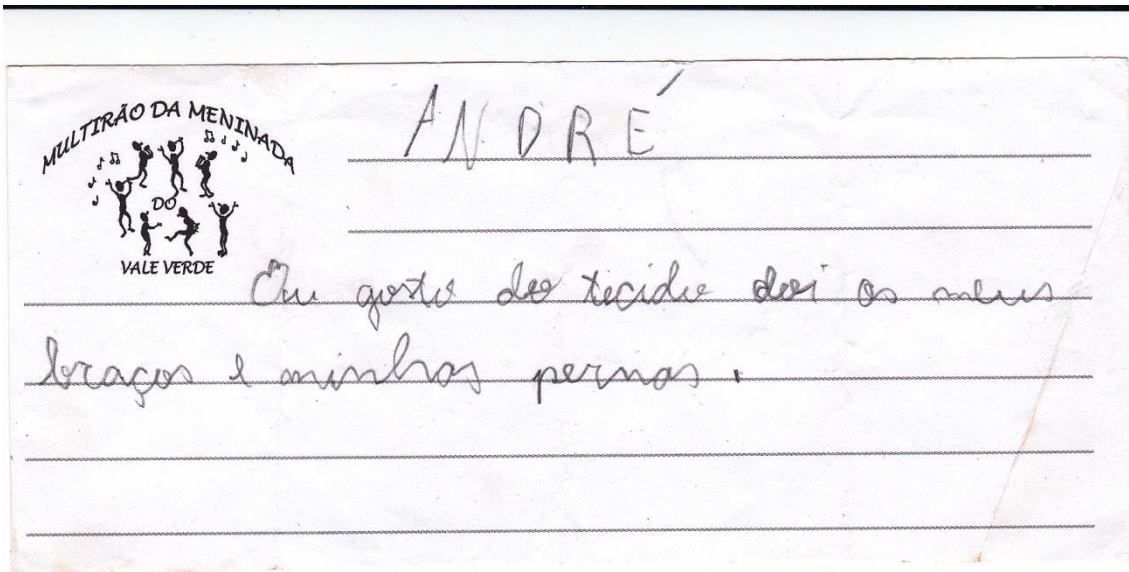 MULTIRÃO DA MENINADA
DO
VALE VERDE
ANDRÉ
Eu gosto do tecido doi os meus
braços e minhas pernas.